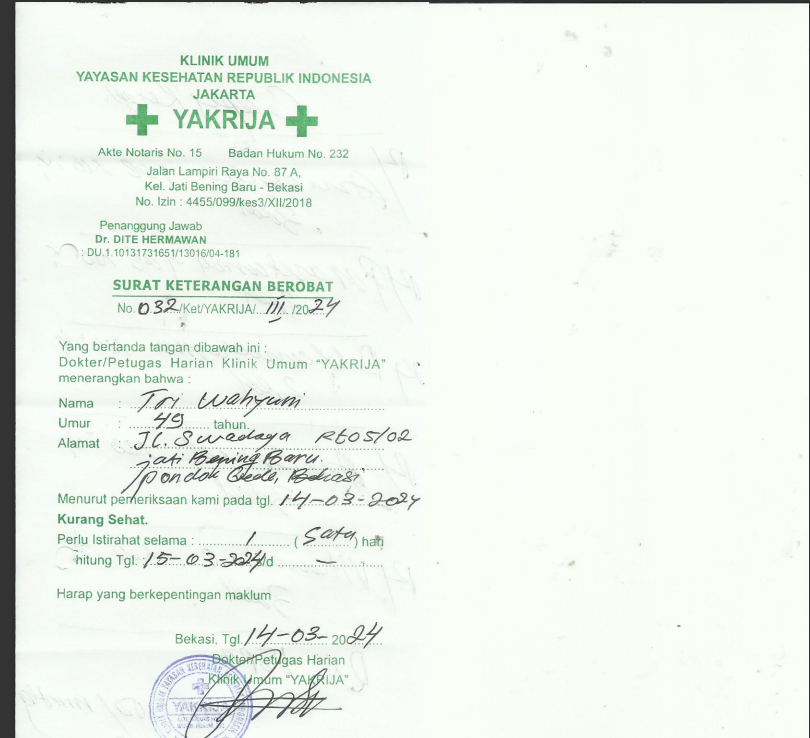 KLINIK UMUM
YAYASAN KESEHATAN REPUBLIK INDONESIA
JAKARTA
YAKRIJA
Akte Notaris No. 15 Badan Hukum No. 232
Jalan Lampiri Raya No. 87 A,
Kel. Jati Bening Baru - Bekasi
No. Izin : 4455/099/kes3/XII/2018
Penanggung Jawab
Dr. DITE HERMAWAN
: DU.1.10131731651/13016/04-181
SURAT KETERANGAN BEROBAT
No. 032/Ket/YAKRIJA/ III /2024
Yang bertanda tangan dibawah ini :
Dokter/Petugas Harian Klinik Umum "YAKRIJA"
menerangkan bahwa :
Nama : Tri Wahyuni
Umur : 49 tahun.
Alamat : Jl. Swadaya Rt05/02
jati Bening Baru.
pondok Gede, Bekasi
Menurut pemeriksaan kami pada tgl. 14-03-2024
Kurang Sehat.
Perlu Istirahat selama : 1 (Satu) hari
hitung Tgl. 15-03-2024 s/d -
Harap yang berkepentingan maklum
Bekasi, Tgl. 14-03-2024
Dokter/Petugas Harian
Klinik Umum "YAKRIJA"
YAKRIJA